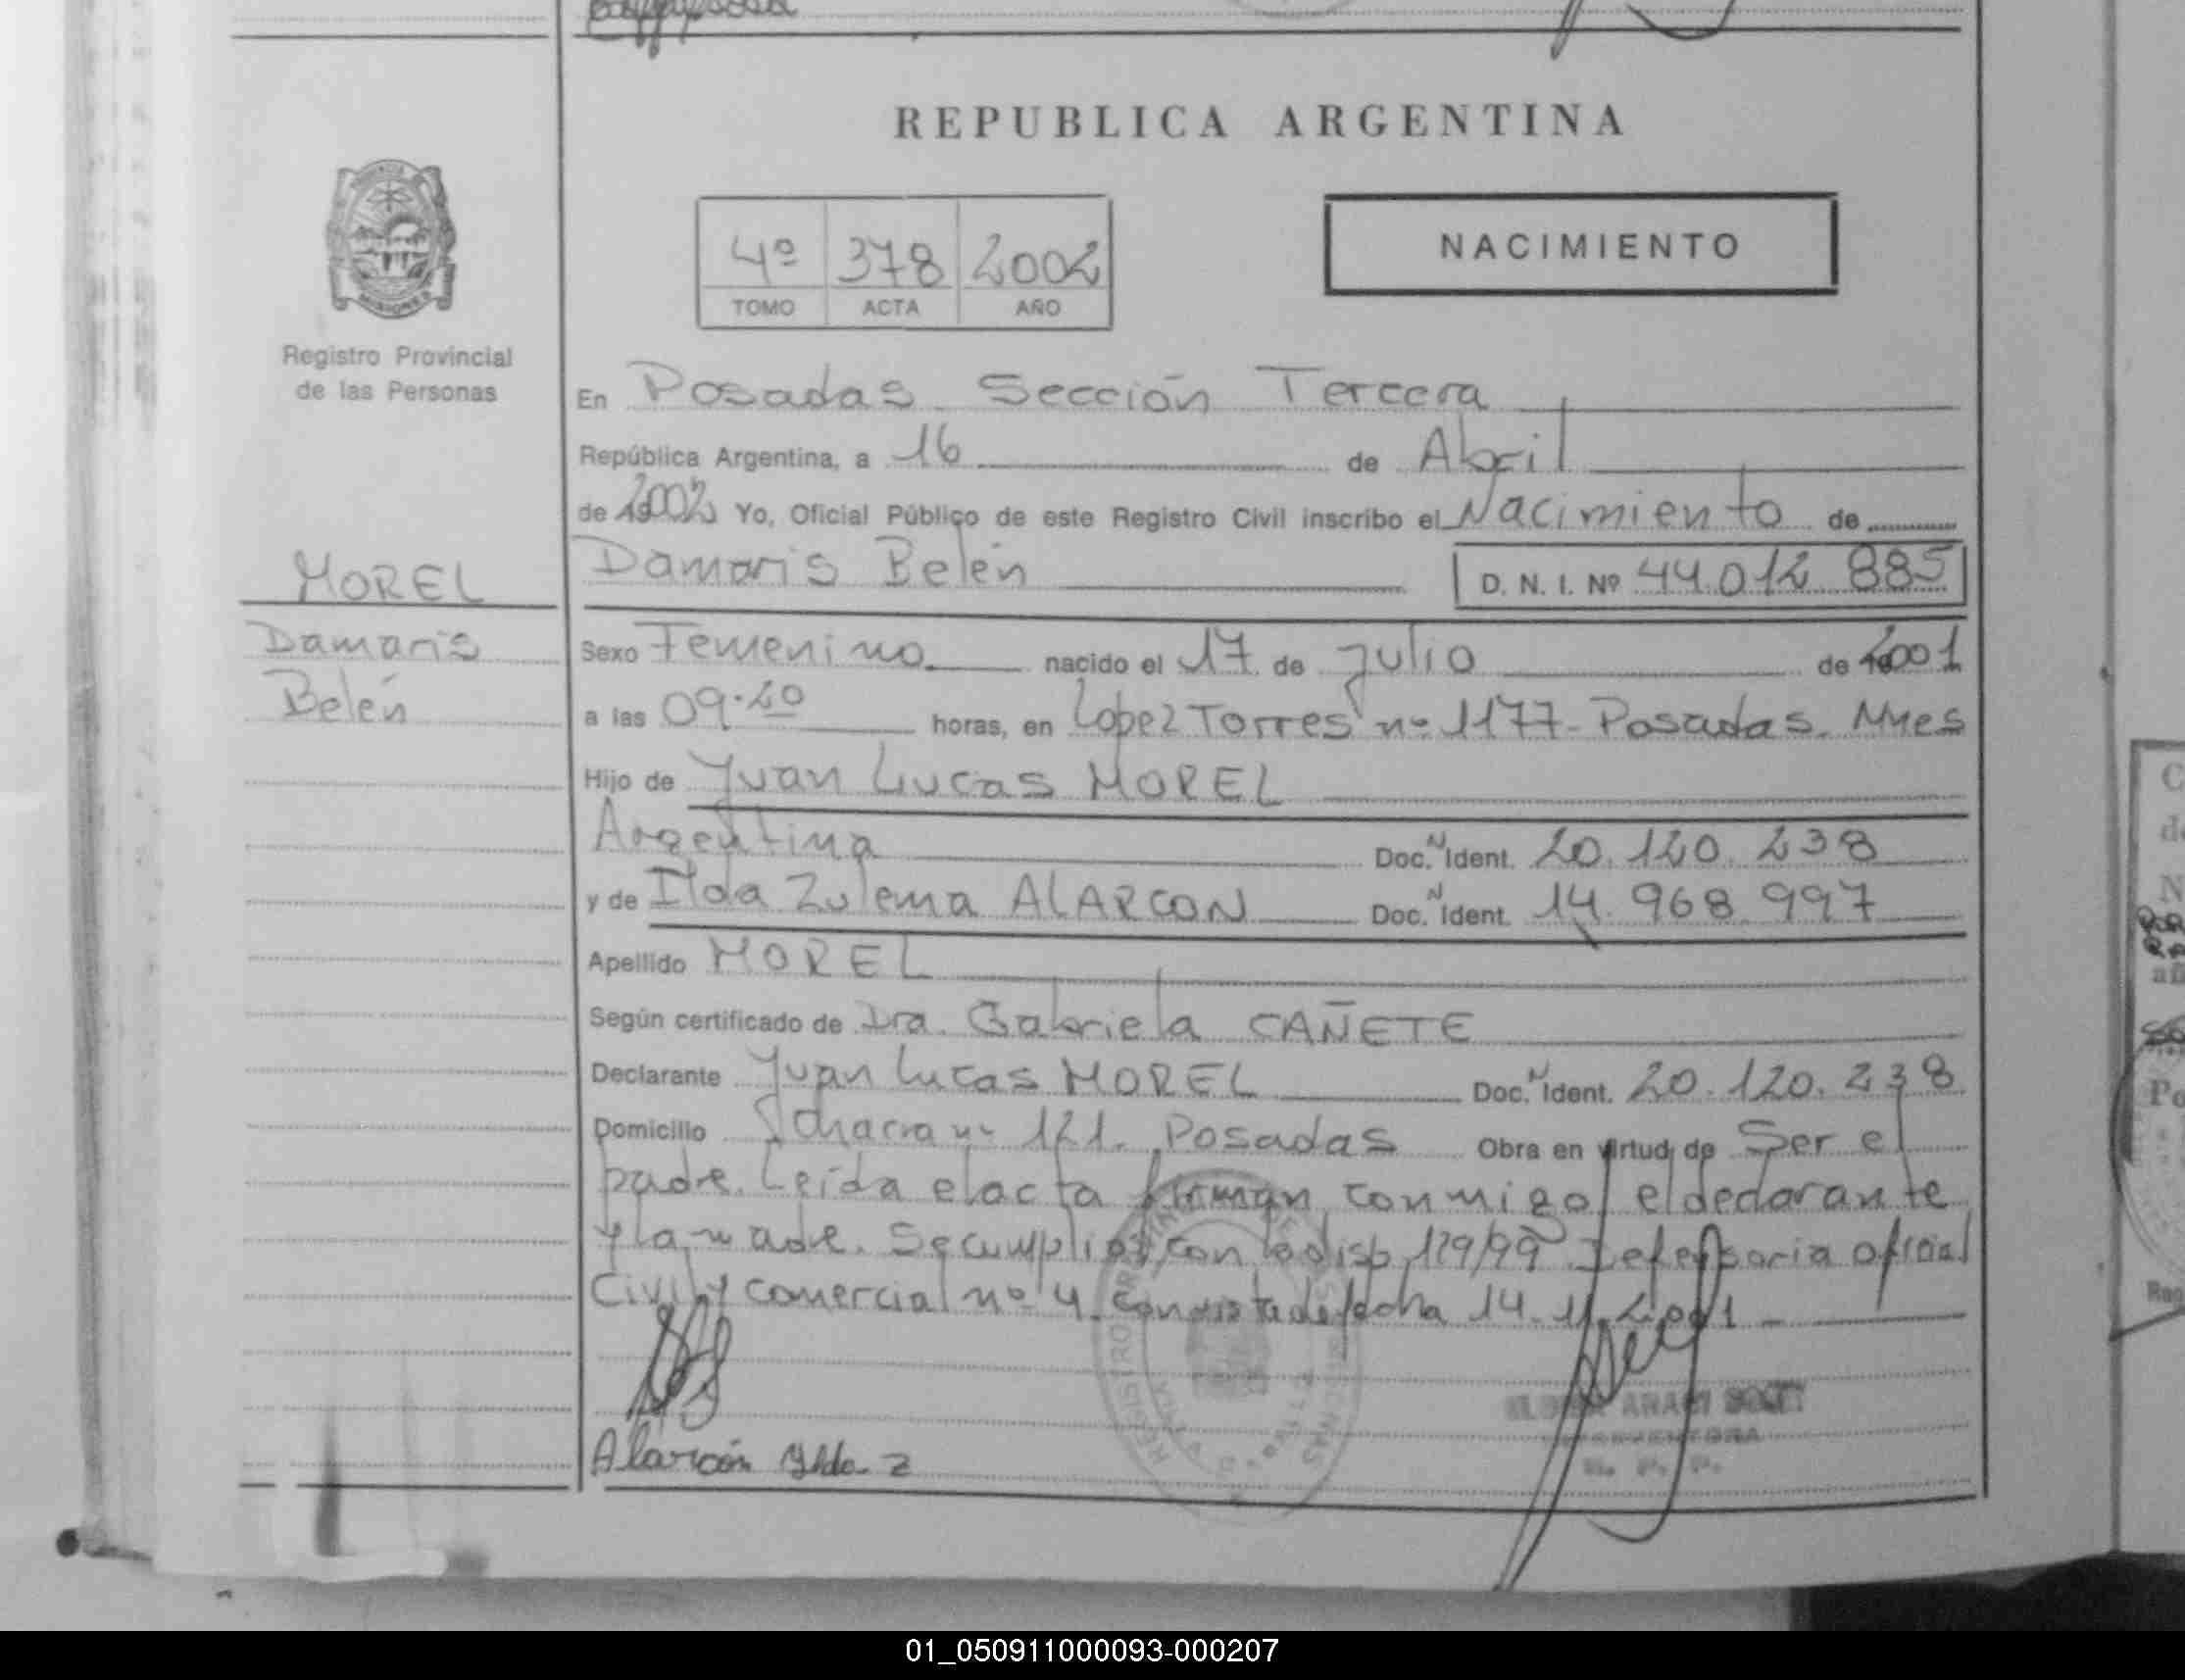 REPUBLICA ARGENTINA
4º 378 2002
TOMO ACTA AÑO
NACIMIENTO
MISIONES
Registro Provincial
de las Personas
En Posadas Sección Tercera
República Argentina, a 16 de Abril
de 2002 Yo, Oficial Público de este Registro Civil inscribo el Nacimiento de
MOREL
Damaris Belén D. N. I. Nº 44.012 885
Damaris
Sexo Femenino nacido el 17 de Julio de 2001
Belén
a las 09.20 horas, en Lopez Torres nº 1177 - Posadas. Mnes
Hijo de Juan Lucas MOREL
Argentina Doc. N Ident. 20.120.238
y de Ilda Zulema ALARCON Doc. N Ident. 14.968.997
Apellido MOREL
Según certificado de Dra. Gabriela CAÑETE
Declarante Juan Lucas MOREL Doc. N Ident. 20.120.238
Domicilio Chacra nº 121. Posadas Obra en virtud de Ser el
padre. Leída el acta firman conmigo el declarante
y la madre. Se cumplió con la disp 129/99 Defensoria oficial
Civil y comercial nº 4 con vista de fecha 14.11.2001 -
ARACI
Alarcón Ylda Z
01_050911000093-000207